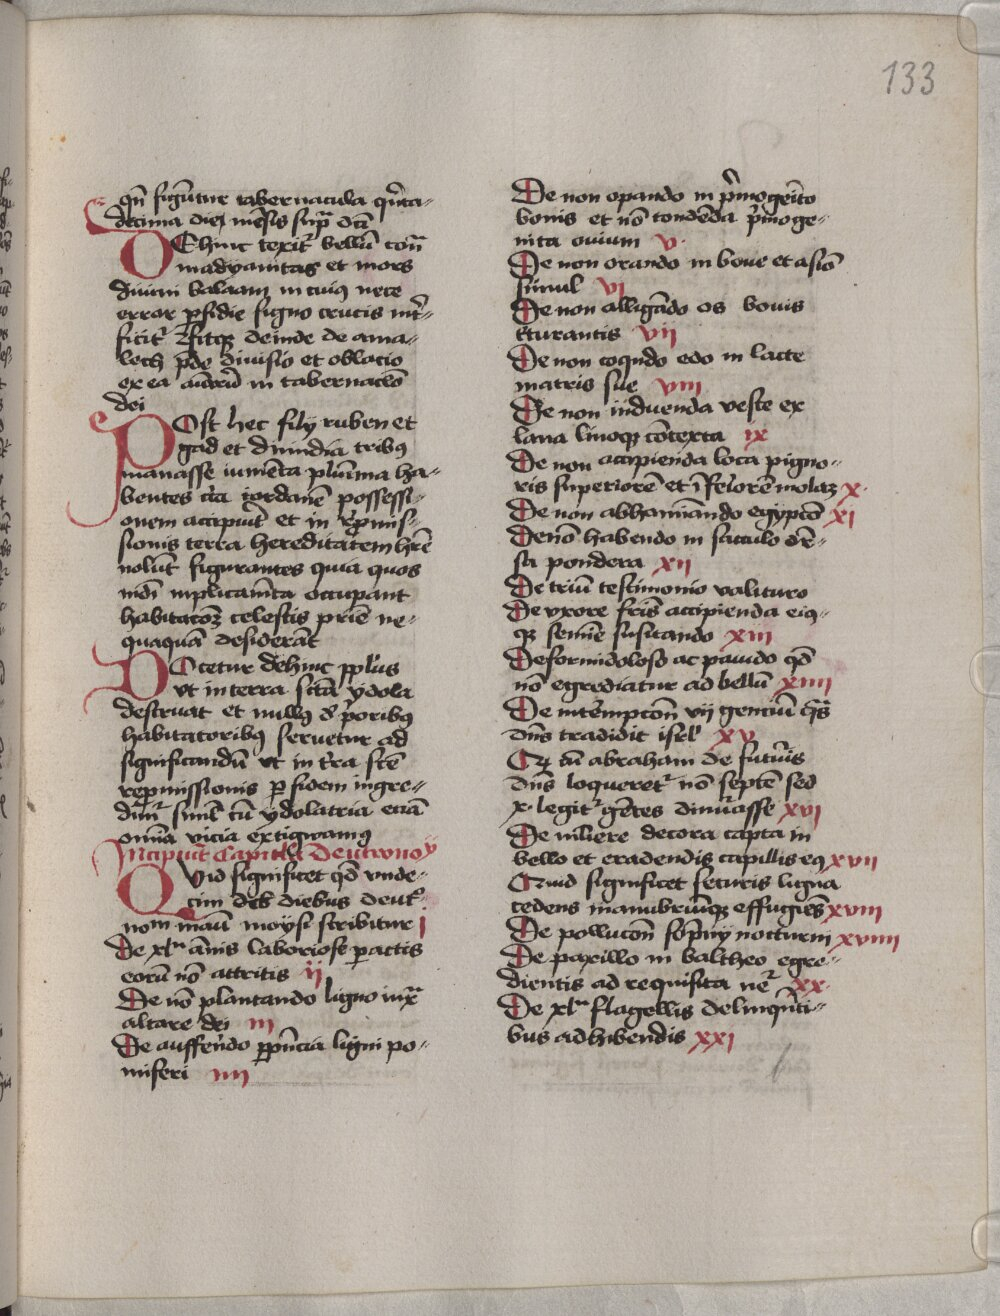 133
qn̄ figūntur tabernacula qͥnta-
decima diei mēsis supͣ dcē
DEhinc texitͬ bellū contͣ
madyanitas et mors
diuini balaam in cuiꝯ nece
error ꝑfidie signo crucis intͬ-
ficitͬ Fitqꝫ deinde de ama-
lech p̄de diuisio et oblacio
ex ea auroꝝ in tabernaclō
dei
POst hec filij ruben et
gad et dimidia tribꝯ
manasse iumēta plurima ha-
bentes cͥca iordanē possessi-
onem accipiūt et in repmis-
sionis terra hereditatem hr̄e
nolūt figurantes quia quos
mūdi implicamēta occupant
habitatōꝫ celestis pr̄ie ne-
quaquā desiderāt
DOcetur dehinc pplͥus
vt in terra sctā ydola
destruat et nullꝯ de pͥoribꝯ
habitatoribꝯ seruetur ad
significandū vt in tr̄a scē
repmissionis ꝑ fidem ingre-
dimͬ simul cū ydolatria eciā
omīa vicia extigwamꝯ
Incipiūt Capitula Deutronoȳ
QVid significet qd̄ vnde-
cim dēb diebus deutͦ-
nom̄ manū moysi scribitur i
De xlᵗᵃ ānis laboriose ꝑactis
eorū nō attritis ii
De nō plantando ligno iuxͣ
altare dei iii
De aufferēdo ꝑpūcia ligni po-
miferi iiii
De non opando in pͥmogeīto
bouis et nō tondēda pͥmoge-
nita ouium v
De non orando in boue et asiō
simul vi
De non alligādo os bouis
trturantis vii
De non coqndo edo in lacte
matris sue viii
De non induenda veste ex
lana linoqꝫ cōtexta ix
De non accipienda loca pigno-
ris superiorē et īferiorē molaꝫ x
De non abhaminando egyptō xi
De nō habendo in sacculo dr̄-
sa pondera xii
De triū testimonio valituro
De vxore frīs accipienda eiꝯ-
qꝫ semīe susitando xiii
De formidoloso ac pauido qd̄
nō egrediatur ad bellū xiiii
De interempcōn vij gentiū qͣs
dn̄s tradidit isrl̄ xv
Cꝝ cū abraham de futuris
dn̄s loqueretͬ nō septē sed
x legitͬ gētes dimicasse xvi
De mliere decora capta in
bello et eradendis capillis eꝯ xvii
Quid significet securis ligna
cedens manubriūqꝫ effugiēs xviii
De pollucōn sōpnij nocturni xviiii
De paxillo in baltheo egre-
dientis ad requisita nēͬ xx
De xlᵗᵃ flagellis delinqūti-
bus adhibendis xxi